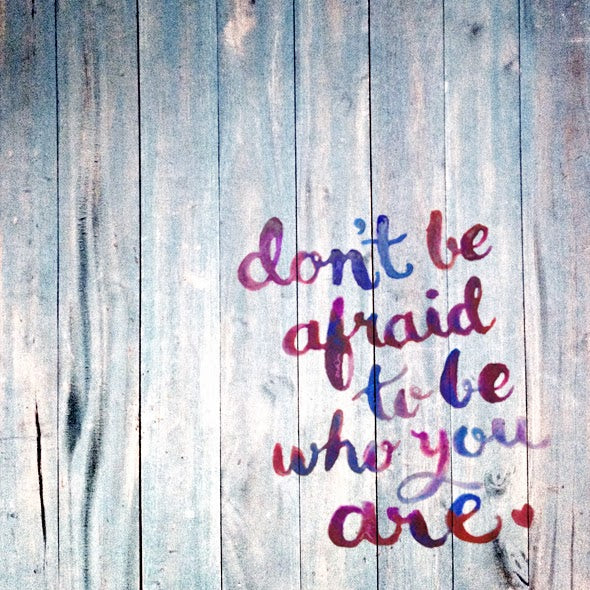 don't be
afraid
to be
who you
are